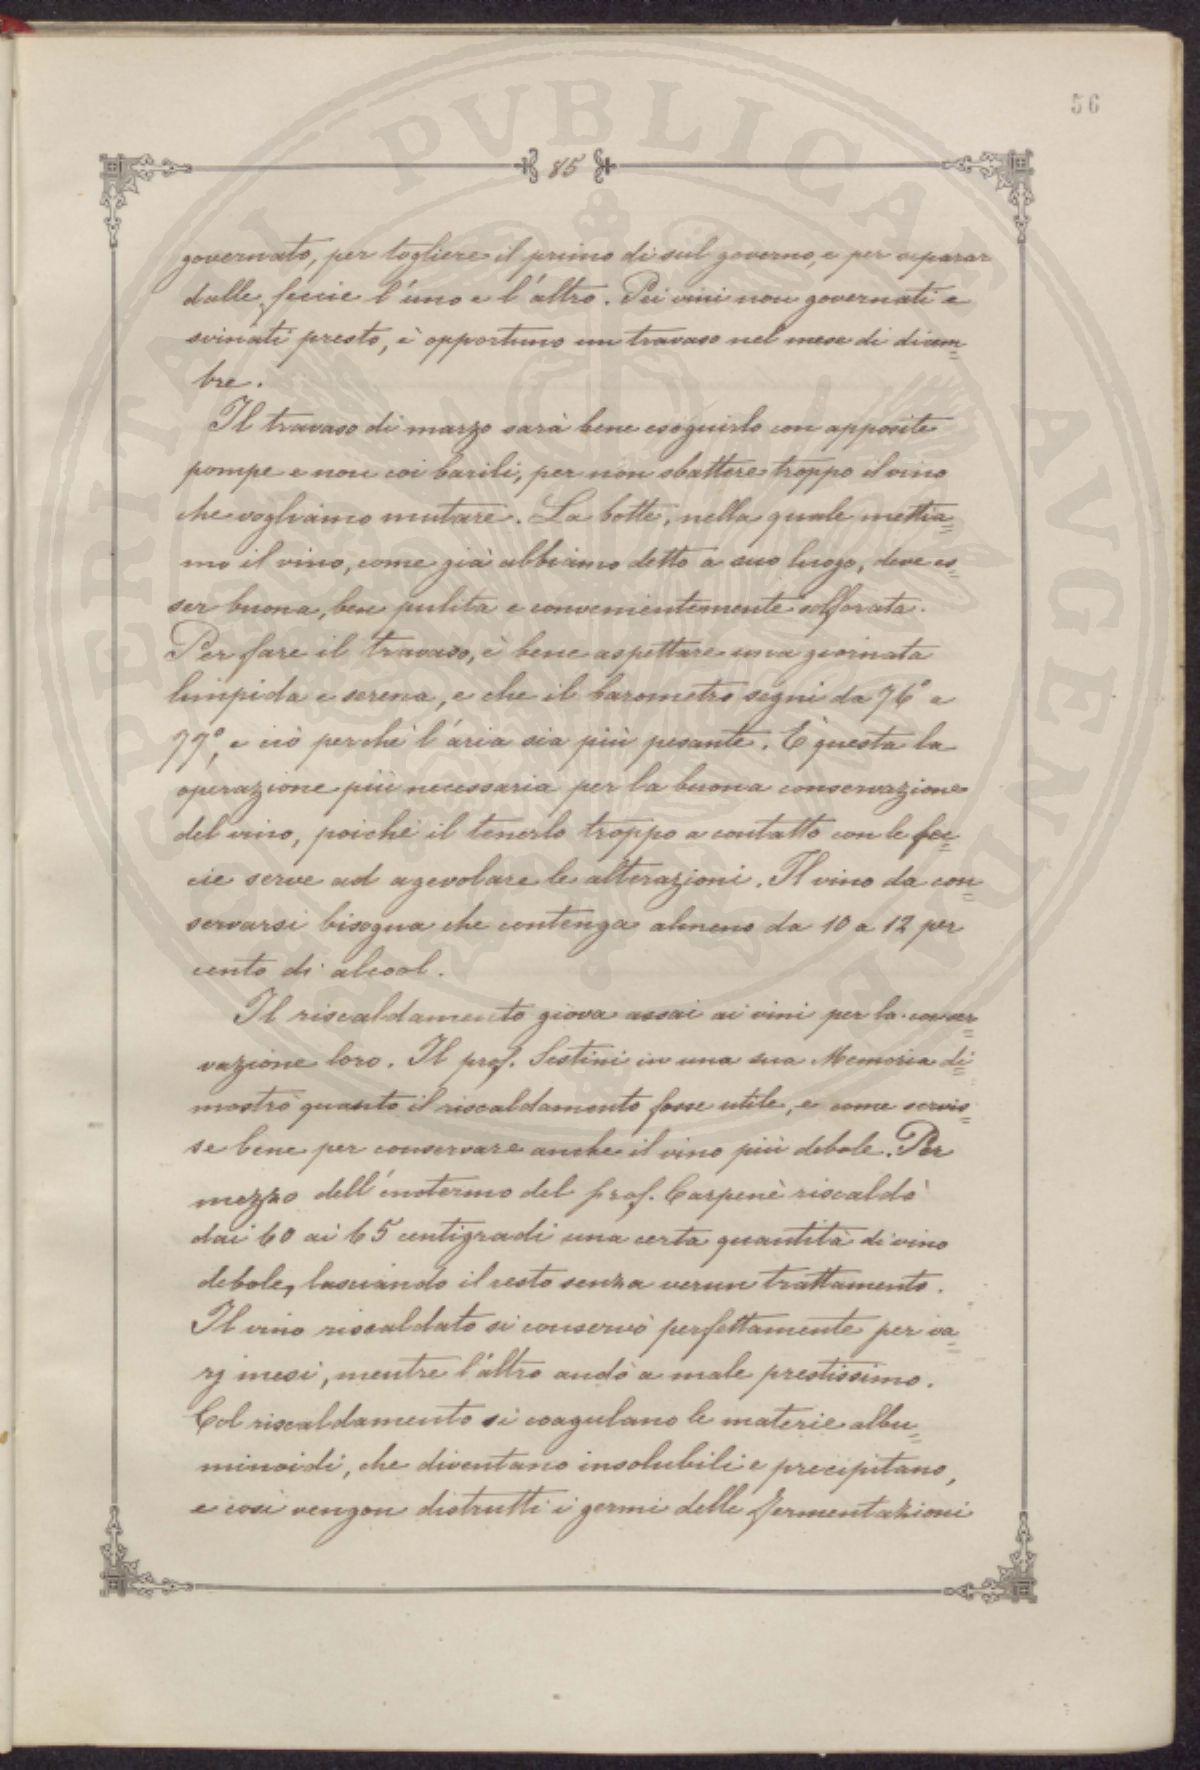 56
85
governato, per togliere il primo di sul governo, e per separar
dalle feccie l'uno e l'altro. Pei vini non governati e
svinati presto, è opportuno un travaso nel mese di dicem=
bre.
Il travaso di marzo sarà bene eseguirlo con apposite
pompe e non coi barili, per non sbattere troppo il vino
che vogliamo mutare. La botte, nella quale mettia=
mo il vino, come già abbiamo detto a suo luogo, deve es=
ser buona, ben pulita e convenientemente solforata.
Per fare il travaso, è bene aspettare una giornata
limpida e serena, e che il barometro segni da 76° a
77°, e ciò perchè l'aria sia più pesante. È questa la
operazione più necessaria per la buona conservazione
del vino, poichè il tenerlo troppo a contatto con le fec=
cie serve ad agevolare le alterazioni. Il vino da con=
servarsi bisogna che contenga almeno da 10 a 12 per
cento di alcool.
Il riscaldamento giova assai ai vini per la conser=
vazione loro. Il prof. Sestini in una sua Memoria di=
mostrò quanto il riscaldamento fosse utile, e come servis=
se bene per conservare anche il vino più debole. Per
mezzo dell'enotermo del prof. Carpenè riscaldò
dai 60 ai 65 centigradi una certa quantità di vino
debole, lasciando il resto senza verun trattamento.
Il vino riscaldato si conservò perfettamente per va=
rj mesi, mentre l'altro andò a male prestissimo.
Col riscaldamento si coagulano le materie albu=
minoidi, che diventano insolubili e precipitano,
e così vengon distrutti i germi delle fermentazioni